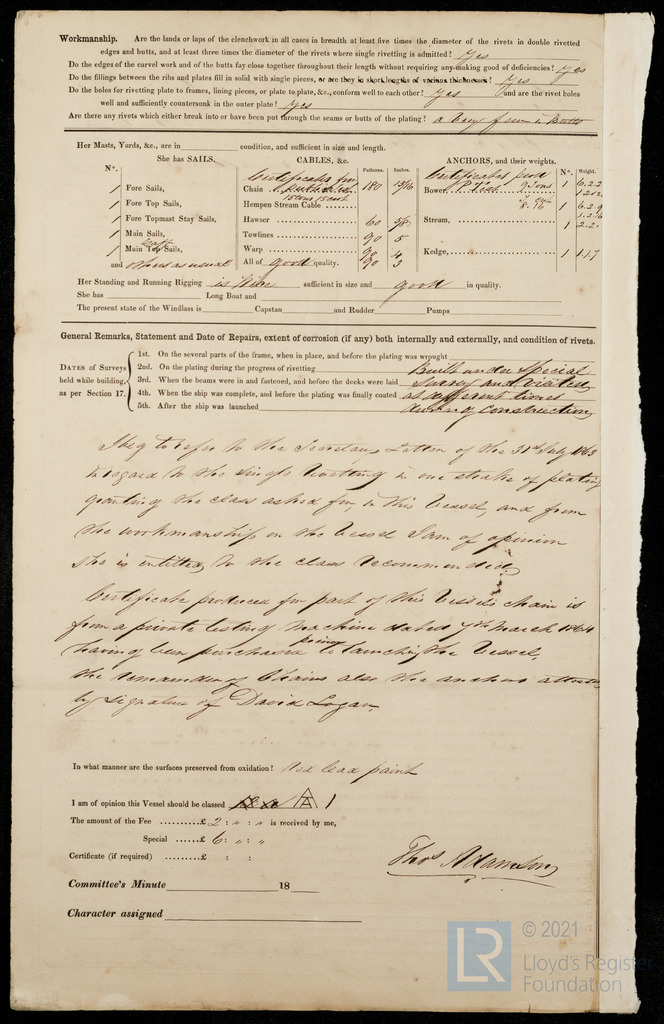 Workmanship. Are the lands or laps of the clenchwork in all cases in breadth at least five times the diameter of the rivets in double rivetted
edges and butts, and at least three times the diameter of the rivets where single rivetting is admitted? Yes
Do the edges of the carvel work and of the butts fay close together throughout their length without requiring any making good of deficiencies? Yes
Do the fillings between the ribs and plates fill in solid with single pieces, or are they in short lengths of various thicknesses? Yes
Do the holes for rivetting plate to frames, lining pieces, or plate to plate, &c., conform well to each other? Yes and are the rivet holes
well and sufficiently countersunk in the outer plate? Yes
Are there any rivets which either break into or have been put through the seams or butts of the plating? a very few in Butts
Her Masts, Yards, &c., are in condition, and sufficient in size and length.
She has SAILS. CABLES, &c. Fathoms. Inches. ANCHORS, and their weights. Nº. Weight.
Nº. Certificates for Certificates prod
1 Fore Sails, Chain 180 13/16 Bower, 1 6.2.2
15 tons 15 cwt
1 Fore Top Sails, Hempen Stream Cable 1 6.2.9
1 Fore Topmast Stay Sails, Hawser 60 5/8 Stream, 1 2.2
1 Main Sails, Towlines 90 5
1 Main Top Sails, Warp 90 4 Kedge, 1 1.1.7
and others as usual All of good quality. 90 3
Her Standing and Running Rigging is Wire sufficient in size and good in quality.
She has Long Boat and
The present state of the Windlass is Capstan and Rudder Pumps
General Remarks, Statement and Date of Repairs, extent of corrosion (if any) both internally and externally, and condition of rivets.
DATES of Surveys held while building, as per Section 17.
1st. On the several parts of the frame, when in place, and before the plating was wrought
2nd. On the plating during the progress of rivetting Built under Special
3rd. When the beams were in and fastened, and before the decks were laid Survey and visited
4th. When the ship was complete, and before the plating was finally coated at different times
5th. After the ship was launched during construction
I beg to refer to the Secretarys Letter of the 31st July 1863
in regard to the single rivetting in one strake of plating
granting the class asked for, in this Vessel, and from
the workmanship on the Vessel I am of opinion
she is entitled to the class recommended.
Certificate produced for part of this Vessels chain is
from a private testing Machine dated 7th March 1864
having been purchased prior to launching the Vessel,
the remainder of Chains also the anchors attested
by Signature of David Logan.
In what manner are the surfaces preserved from oxidation? Red lead paint
I am of opinion this Vessel should be classed A 1
The amount of the Fee .........£ 2 : " : " is received by me,
Special ......£ 6 : " : "
Certificate (if required) ........£ : :
Thos Adamson
Committee's Minute 18
Character assigned
LR © 2021
Lloyd's Register
Foundation